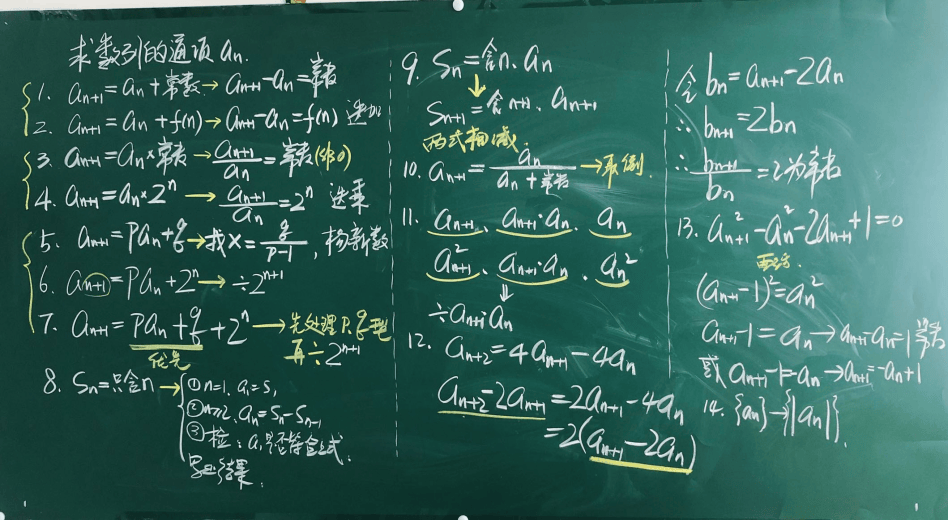 求数列的通项 aₙ.
1. aₙ₊₁=aₙ+常数→aₙ₊₁-aₙ=常数
2. aₙ₊₁=aₙ+f(n)→aₙ₊₁-aₙ=f(n) 迭加
3. aₙ₊₁=aₙ×常数→aₙ₊₁/aₙ=常数(非0)
4. aₙ₊₁=aₙ×2ⁿ→aₙ₊₁/aₙ=2ⁿ 迭乘
5. aₙ₊₁=paₙ+q→找x=q/(p-1), 构新数
6. aₙ₊₁=paₙ+2ⁿ→÷2ⁿ⁺¹
7. aₙ₊₁=paₙ+q+2ⁿ→先处理p.q型
优先 再÷2ⁿ⁺¹
8. Sₙ=只含n→①n=1, a₁=S₁
②n≥2, aₙ=Sₙ-Sₙ₋₁
③检: a₁是否符合上式.
写出结果.
9. Sₙ=含n、aₙ
↓
Sₙ₊₁=含n+1、aₙ₊₁
两式相减.
10. aₙ₊₁=aₙ/(aₙ+常数)→取倒.
11. aₙ₊₁、aₙ₊₁·aₙ、aₙ
a²ₙ₊₁、aₙ₊₁·aₙ、aₙ²
⇓
÷aₙ₊₁aₙ
12. aₙ₊₂=4aₙ₊₁-4aₙ
aₙ₊₂-2aₙ₊₁=2aₙ₊₁-4aₙ
=2(aₙ₊₁-2aₙ)
令 bₙ=aₙ₊₁-2aₙ
∴ bₙ₊₁=2bₙ
∴ bₙ₊₁/bₙ=2为常数
13. a²ₙ₊₁-aₙ²-2aₙ₊₁+1=0
配方.
(aₙ₊₁-1)²=aₙ²
aₙ₊₁-1=aₙ→aₙ₊₁-aₙ=1常数
或 aₙ₊₁-1=-aₙ→aₙ₊₁=-aₙ+1
14. {aₙ}→{|aₙ|}.